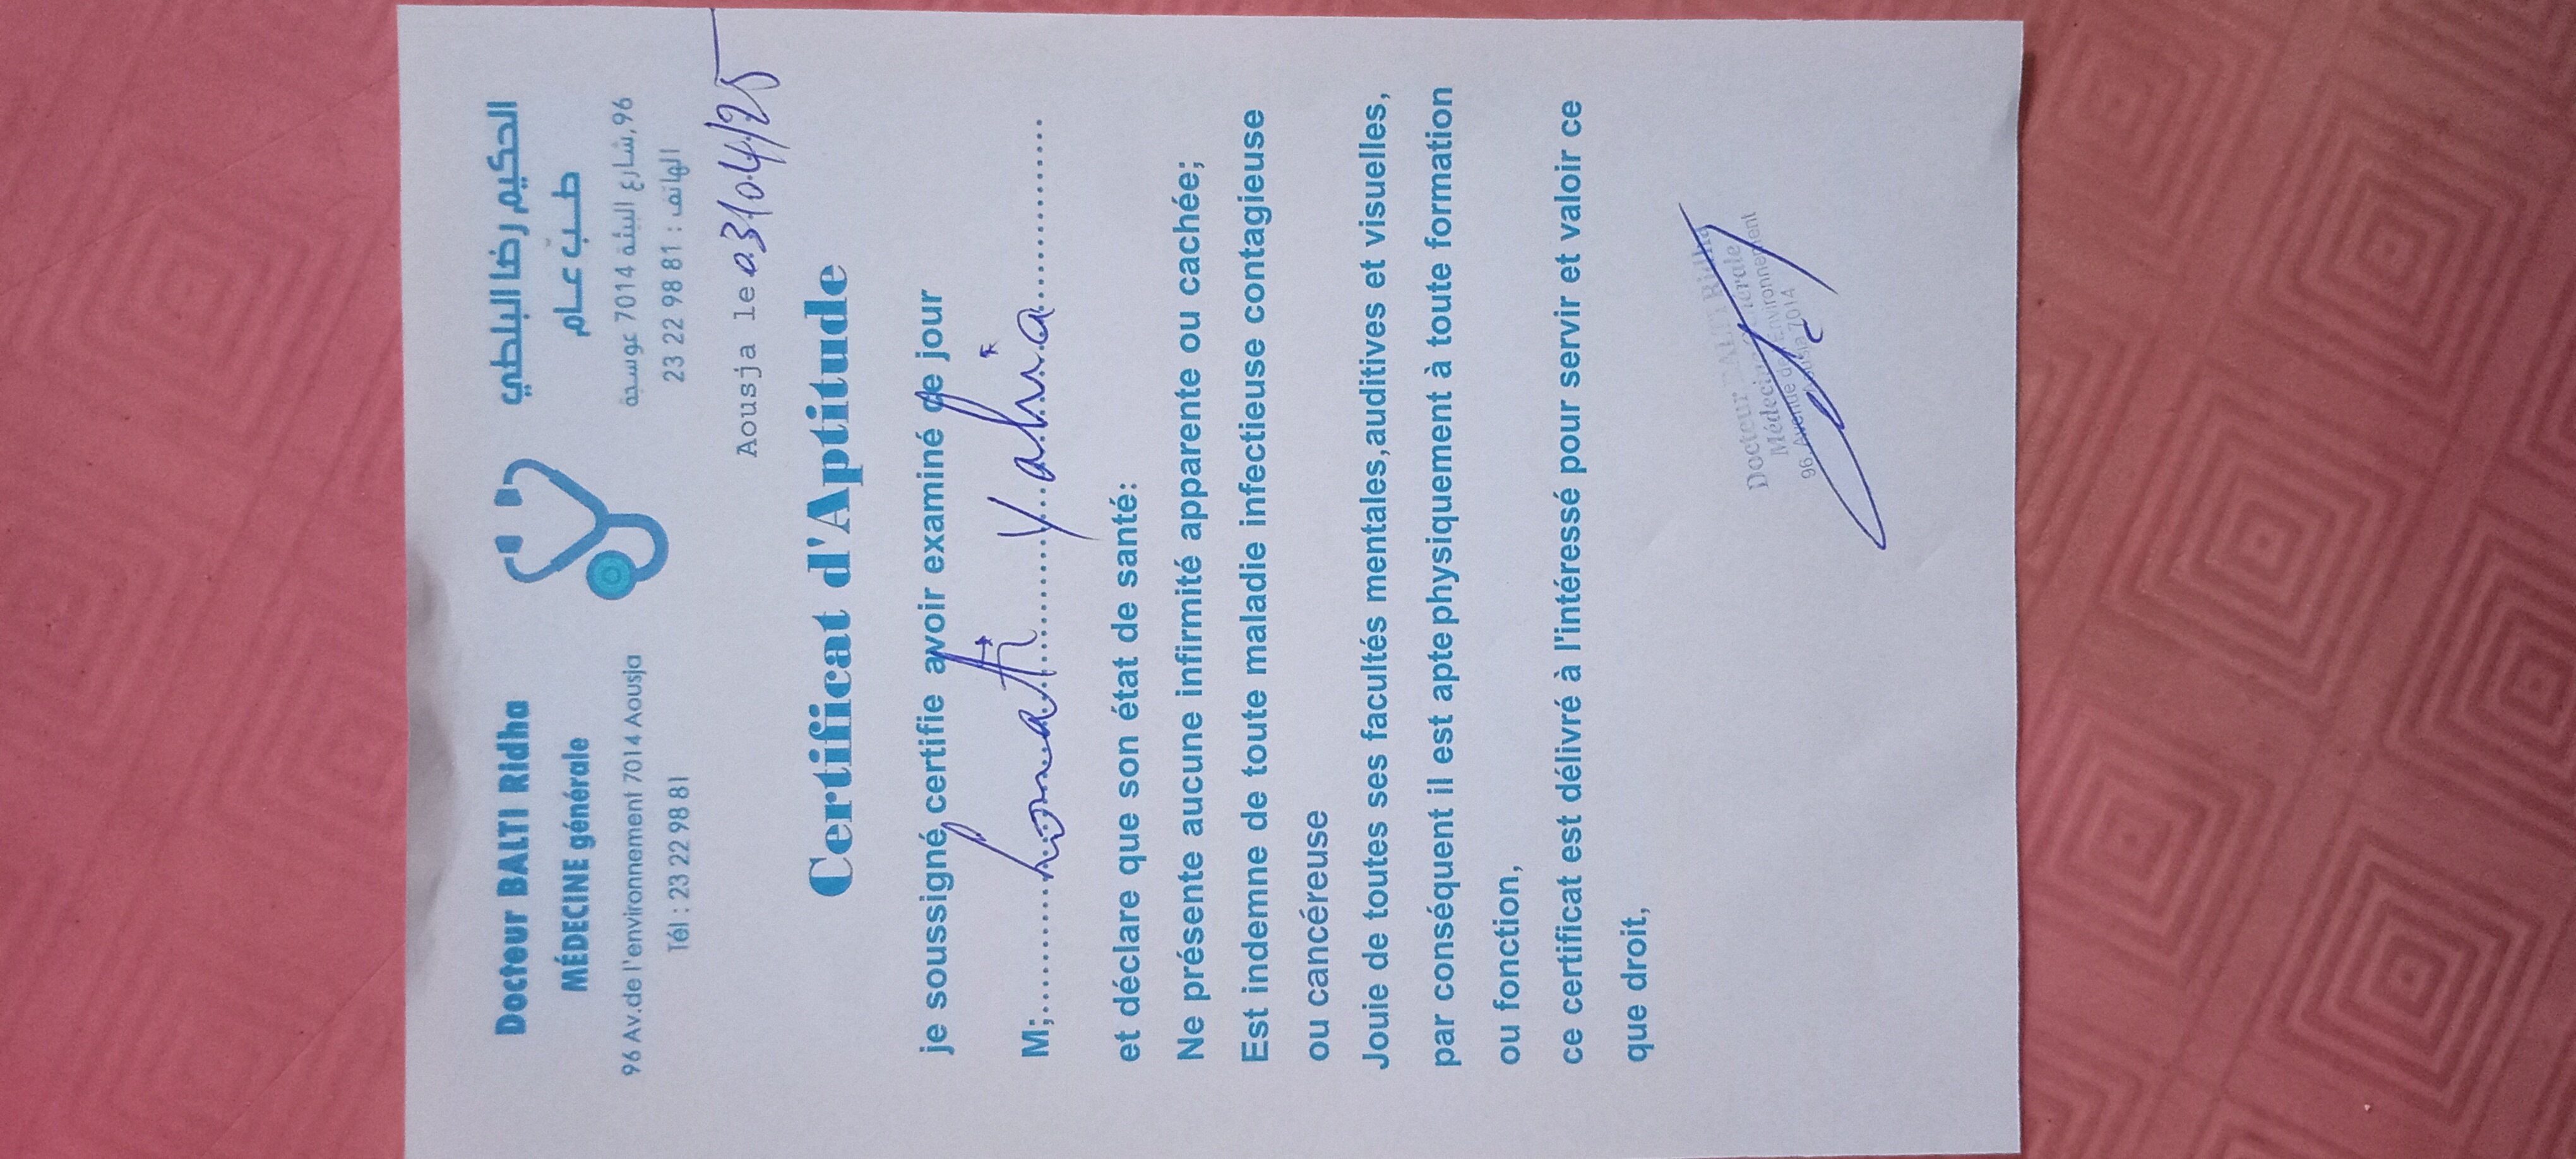 Docteur BALTI RIdha
MÉDECINE générale
96 Av.de l'environnement 7014 Aousja
Tél : 23 22 98 81
الحكيم رضا البلطي
طب عام
96,شارع البيئة 7014 عوسجة
الهاتف : 23 22 98 81
Aousja le 03/04/25
Certificat d'Aptitude
je soussigné certifie avoir examiné de jour
M;............ Yahia............
et déclare que son état de santé:
Ne présente aucune infirmité apparente ou cachée;
Est indemne de toute maladie infectieuse contagieuse
ou cancéreuse
Jouie de toutes ses facultés mentales,auditives et visuelles,
par conséquent il est apte physiquement à toute formation
ou fonction,
ce certificat est délivré à l'intéressé pour servir et valoir ce
que droit,
Docteur BALTI Ridha
Médecine Générale
96, Avenue de l'Environnement
Aousja 7014